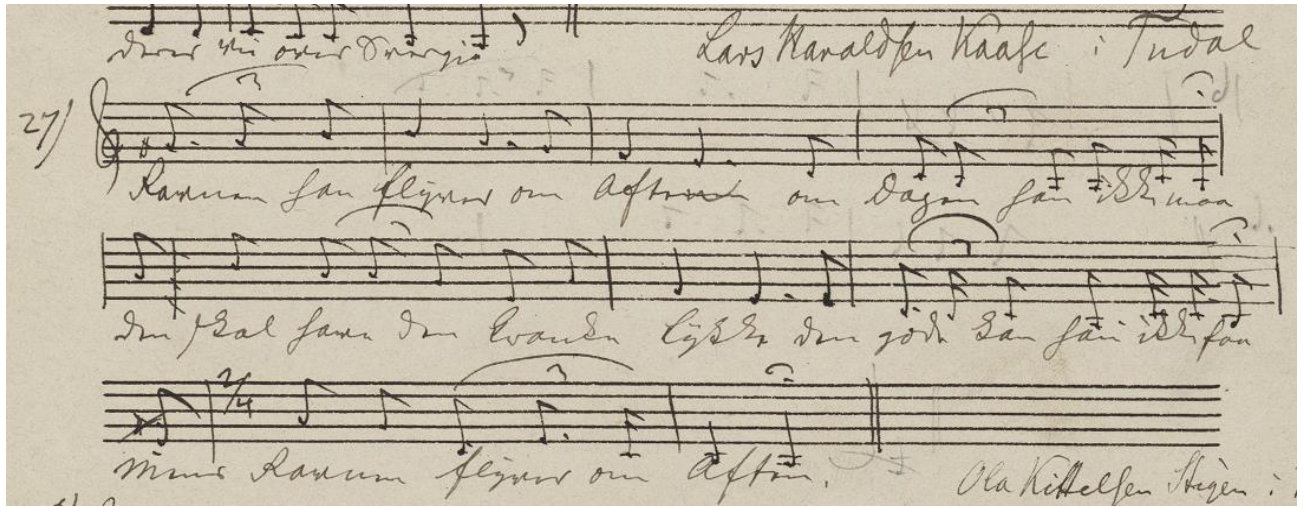 derer vei over Sverige
Lars Haraldsen Kaase i Tudal
27)
Ravnen han flyver om Aften om Dagen han ikke maa
den skal have den Lykke den gode kan han ikke faa
2/4
mens Ravnen flyver om Aften.
Ola Kittelsen Stigen i